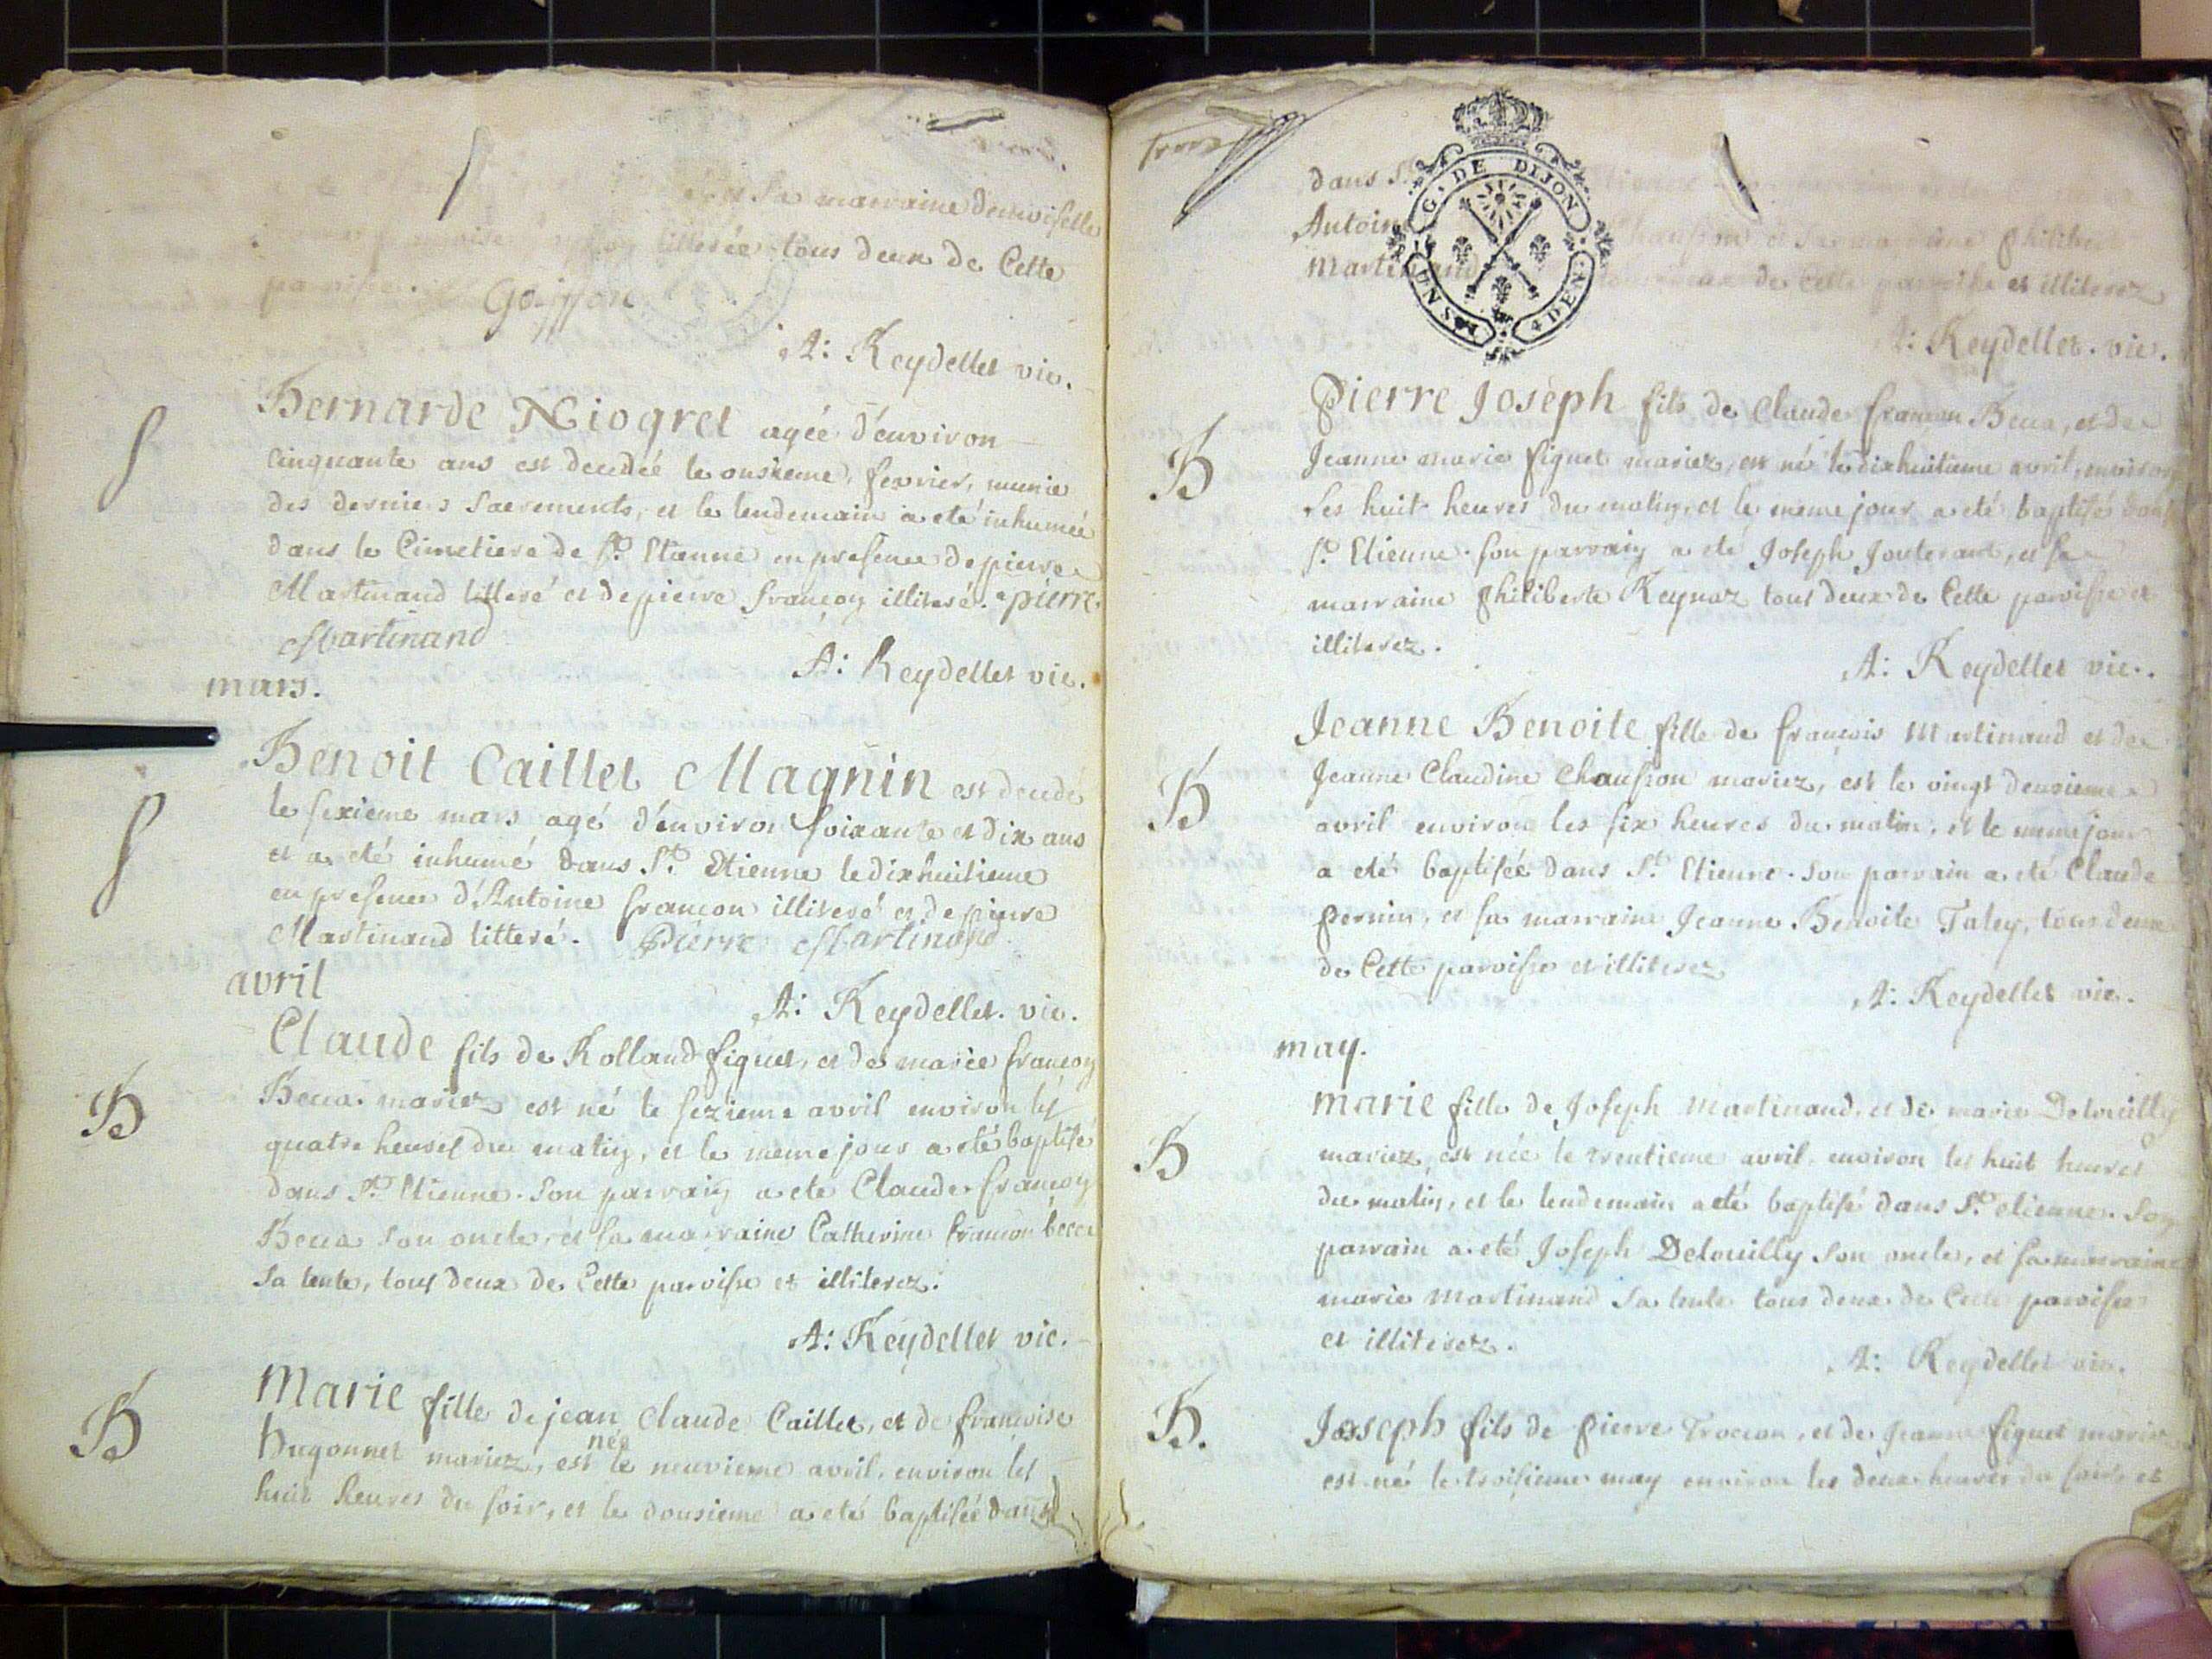 et sa marraine demoiselle
litterée tous deux de Cette
paroisse. Goiffon
A: Reydellet vic.
Bernarde Niogret agée d'environ
Cinquante ans est decedée le onsieme, fevrier, munie
des derniers Sacrements, et le lendemain a eté inhumée
dans le Cimetiere de St. Etienne en presence de pierre
Martinand litteré et de pierre françon illiteré. pierre
Martinand
A: Reydellet vic.
mars.
Benoit Caillet Magnin est decedé
le sexieme mars agé d'environ soixante et dix ans
et a eté inhumé dans St. Etienne le dixhuitieme
en presence d'Antoine françon illiteré et de pierre
Martinand litteré. Pierre Martinand
avril
A: Reydellet. vic.
B
Claude fils de Rolland figuet, et de marie françon
Becca mariez est né le sezieme avril environ les
quatre heures du matin, et le meme jour a eté baptisé
dans St. Etienne. Son parrain a eté Claude françon
Becca son oncle, et sa marraine Catherine françon becca
sa tente, tous deux de Cette paroisse et illiterez.
A: Reydellet vic.
B
Marie fille de jean Claude Caillet, et de françoise
hugonnet mariez, est née le neuvieme avril, environ les
huit heures du soir, et le dousieme a eté baptisée dans
dans St.
Antoine et sa marraine philiberte
Martinand tous deux de Cette paroisse et illiterez
A: Reydellet. vic.
G. DE DIJON
UN SOL 4 DEN.
B
Pierre Joseph fils de Claude françon Becca, et de
Jeanne marie figuet mariez, est né le dixhuitieme avril, environ
Les huit heures du matin, et le meme jour a eté baptisé dans
St. Etienne. son parrain a eté Joseph et sa
marraine philiberte Reynaz tous deux de Cette paroisse et
illiterez.
A: Reydellet vic.
B
Jeanne Benoite fille de françois Martinand et de
Jeanne Claudine Chausson mariez, est le vingt deuxieme
avril environ les six heures du matin, et le meme jour
a eté baptisée dans St. Etienne. Son parrain a eté Claude
pernin, et sa marraine Jeanne Benoite Taley, tous deux
de Cette paroisse et illiterez
A: Reydellet vic.
may.
B
marie fille de Joseph Martinand, et de marie Delouilly
mariez, est née le trentieme avril, environ les huit heures
du matin, et le lendemain a eté baptisé dans St. etienne. Son
parrain a eté Joseph Delouilly son oncle, et sa marraine
marie martinand sa tente tous deux de Cette paroisse
et illiterez.
A: Reydellet vic.
B.
Josseph fils de pierre Trocon, et de jeanne figuet mariez
est né le troisieme may environ les deux heures du soir, et